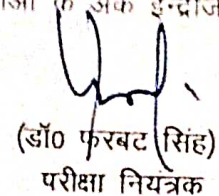 के अंक
(डॉ0 फरबट सिंह)
परीक्षा नियंत्रक